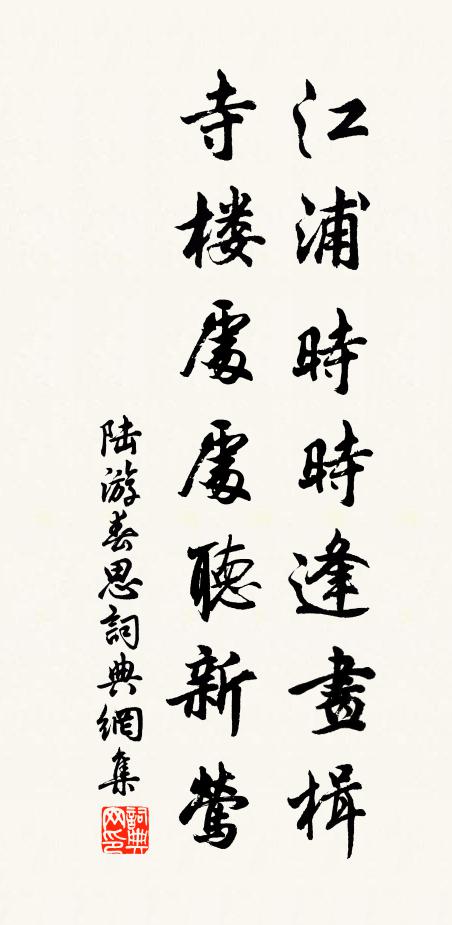 江浦時時逢畫楫
寺楼處處聽新鶯
陆游春思詞典網集
詞典网印